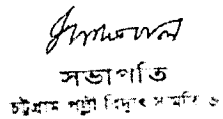 সভাপতি
চট্টগ্রাম পল্লী বিদ্যুৎ সমিতি ৬